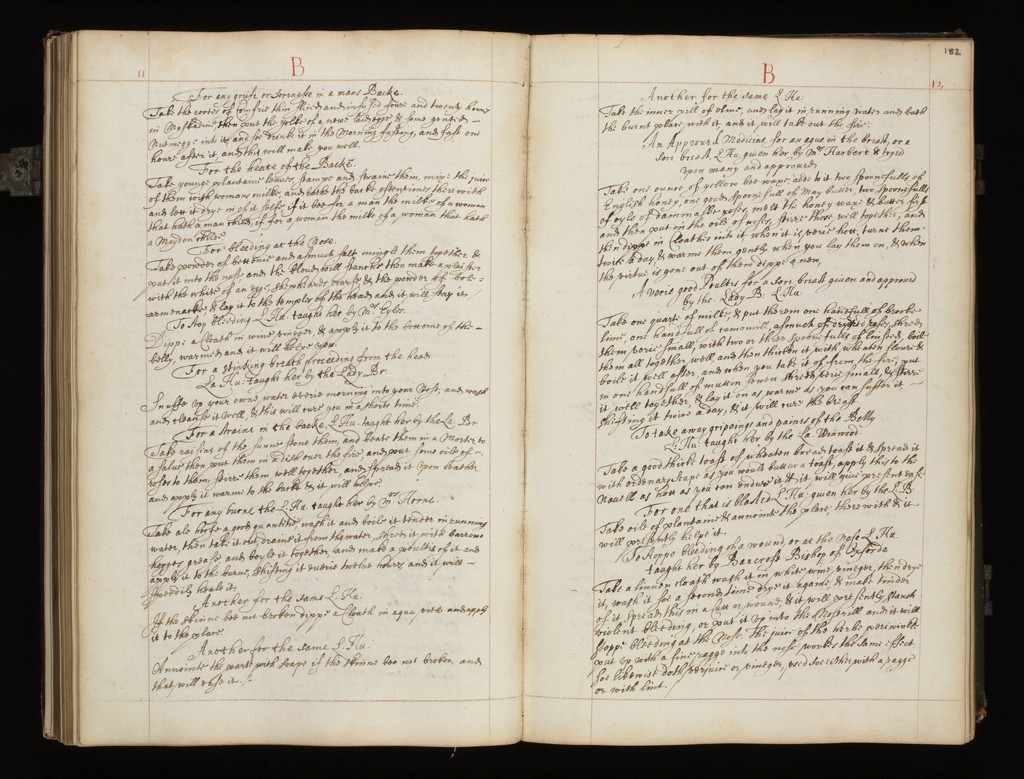 11
B
For any griefe or sorenesse in a mans Backe.
Take the rootes of Comfrie thin sliced and infused foure and twenty houres
in Maskadine, then put the yolke of a new laid egge & some grated
Nutmegge into it, and so drinke it in the Morning fasting, and fast one
houre after it, and this will make you well.
For the heate of the Backe.
Take younge plantaine leaves, stampe and straine them, mixe the juice
of them with womans milke, and bathe the backe oftentimes therewith
and lett it drye in of it selfe, if it bee for a man the milke of a woman
that hath a man child, if for a woman the milke of a woman that hath
a Mayden childe.
For bleeding at the Nose.
Take powder of bettonie and asmuch salt mingle them together &
put it into the nose and the bloud will stanche then make a plaister
with the white of an egg, shepheards pourse, & the powder of bole
armenacke & lay it to the temples of the head and it will stay it.
To stop bleeding L. Hu. taught her by Mr Eyles.
Dippe a Cloath in wine vineger & apply it to the bottome of the
belly warmed and it will helpe you.
For a stinking breath proceeding from the head
La. Hu. taught her by the Lady Br.
Snuffe up your owne water everie morning into your Nose, and wash
and cleanse it well, & this will cure you in a shorte time.
For a straine in the backe, L. Hu. taught her by the La. Br.
Take raisins of the sunne stone them, and beate them in a Morter to
a salve then put them in a dish over the fire, and put some oile of
roses to them, stirre them well together, and spread it upon leather
and apply it warme to the backe & it will helpe.
For any burne the L. Hu. taught her by Mrs Horne.
Take ale hoofe a good quantitie, wash it and boile it tender in running
water, then take it out, draine it from the water, shred it with barrowe
hogges grease and boyle it together, and make a poultis of it and
apply it to the burne, shifting it everie twelve houres and it will
speedily heale it.
Another for the same L. Hu.
If the skinne bee not broken dippe a Cloath in aqua vitae and apply
it to the place.
Another for the same L. Hu.
Annointe the parte with soape if the skinne bee not broken, and
that will ease it.
182
B
12
Another for the same L. Hu.
Take the inner pill of elme, and lay it in running water and bath
the burnt place with it, and it will take out the fire.
An Approved Medicine for an ague in the breast, or a
sore breast, L. Hu. given her by Mrs Harbert & tryed
upon many and approoved.
Take one ounce of yellow bee waxe, adde to it two spoonefulls of
English honey, one good spoonefull of May butter, two spoonefulls
of oyle of dammaske roses, melt the honey waxe & butter first
and then put in the oile of roses, stirre these well together, and
then dippe in Cloathes into it when it is verie hott, turne them
twice a day, & warme them gently when you lay them on, & when
the vertue is gone out of them dippe a new.
A verie good Poultis for a sore breast given and approved
by the Lady B. L. Hu.
Take one quart of milke, & put therein one handfull of brooke
lime, one handfull of camomill, asmuch of dryed roses, shred
them verie small, with two or three spoonefulls of linseed, boile
them all together well, and then thicken it with wheaten flower &
boile it well after, and when you take it of from the fire, put
in one handfull of mutton sewett shred verie small, & stirre
it well together, & lay it on as warme as you can suffer it,
shifting it twice a day, & it will cure the breast.
To take away gripeings and paines of the Belly
L. Hu. taught her by the La. Winwood
Take a good thicke toast of wheaten bread toast it & spread it
with ordenarie sope as you would butter a toast, apply this to the
Navell as hott as you can endure it & it will give present ease.
For one that is blasted L. Hu: given her by the L. B.
Take oile of plantaine & annointe the place therewith & it
will presently helpe it.
To stoppe bleeding of a wound, or at the Nose L. Hu.
taught her by Bancroft Bishop of Oxforde
Take a linnen cloath wash it in white wine vineger, then drye
it, wash it for a second time drye it againe & make tinder
of it spread this in a cutt or wound, & it will presently stanch
violent bleeding, or put it up into the Nosethrill and it will
stoppe bleeding at the Nose. The juice of the herbe periwinkle
put up with a fine ragge into the nose workes the same effect
soe likewise doth verjuice or vineger used eeither with a ragge
or with lint.